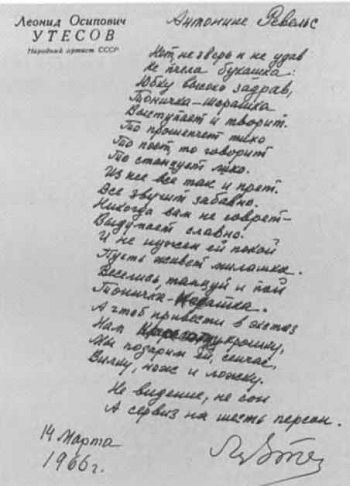 Леонид Осипович
УТЕСОВ
Народный артист СССР
Антонине Ревельс
Нет, не зверь и не удав
Не пчела букашка:
Юбку высоко задрав,
Тоничка-шарашка
Выступает и творит.
То прошепчет тихо
То поет, то говорит
То станцует лихо.
Из нее все так и прет.
Все звучит забавно.
Никогда вам не соврет—
Выдумает славно!
И не нужен ей покой
Пусть живет милашка.
Веселись, танцуй и пой
Тоничка-
А чтоб привести в экстаз
Нам крошку,
Мы подарим ей, сейчас,
Вилку, нож и ложку.
Не видение, не сон
А сервиз на шесть персон.
14 Марта
1966 г.